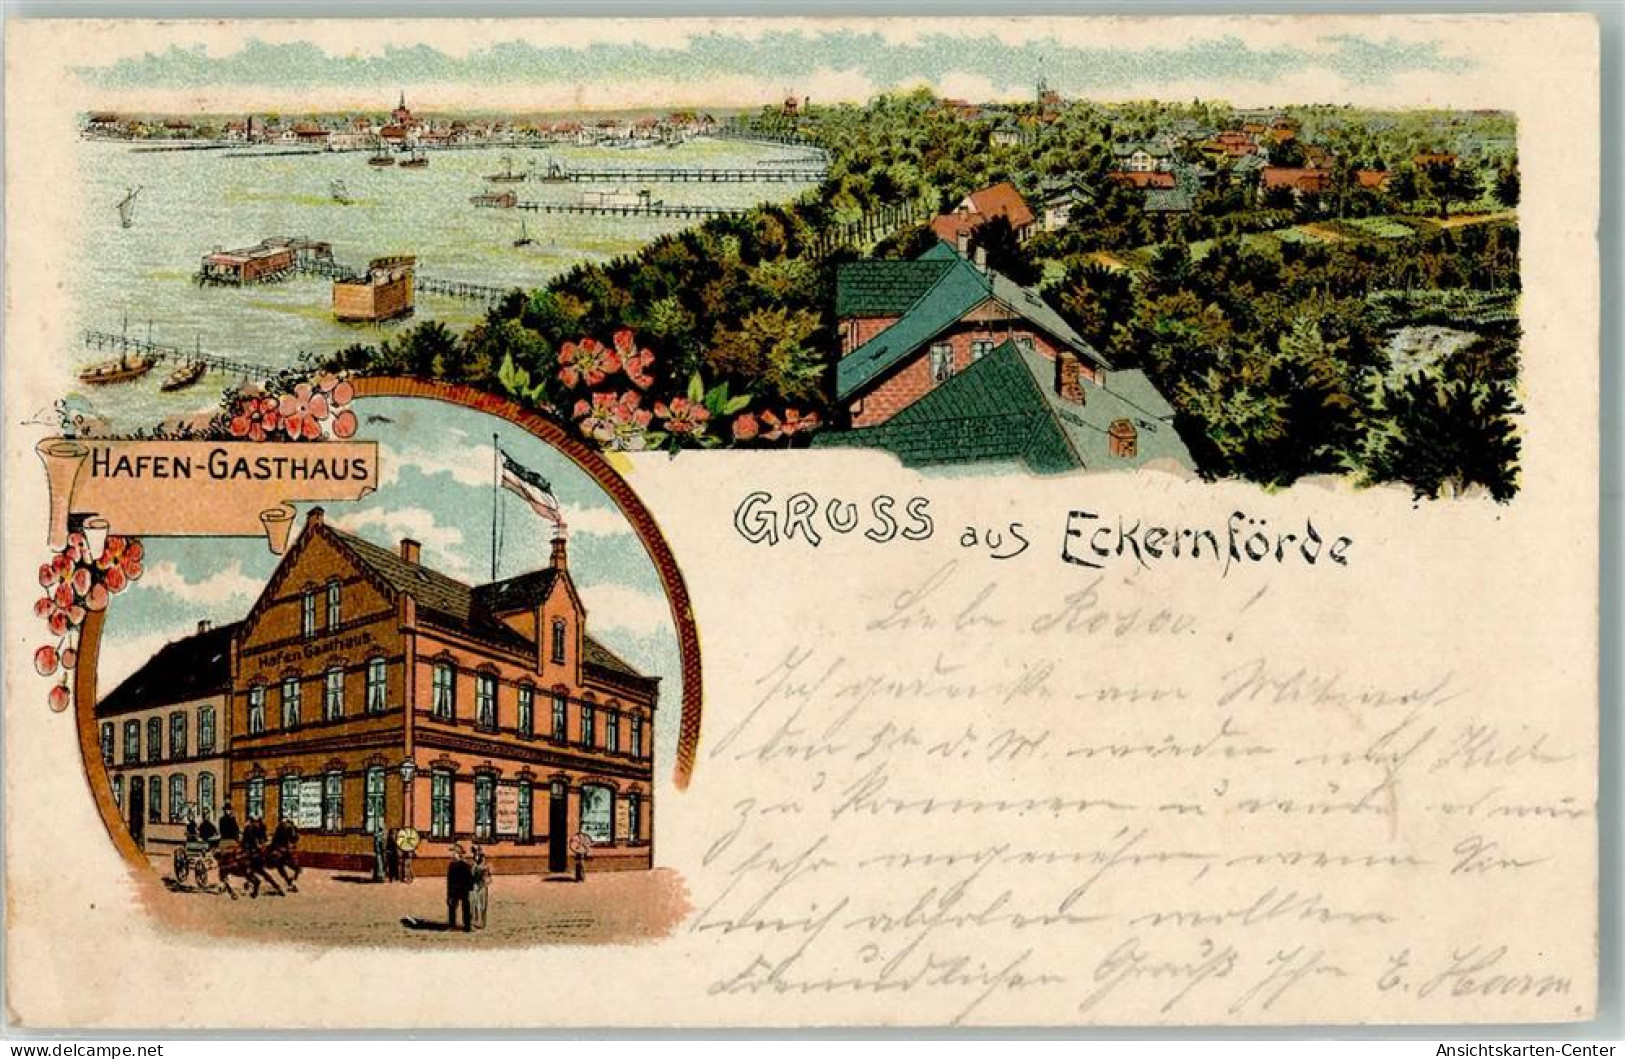 HAFEN-GASTHAUS
Hafen Gasthaus.
GRUSS aus Eckernförde
Liebe
Ich gedenke am Mittwoch
den 5ten d. M. wieder nach Kiel
zu kommen u würde es mir
sehr angenehm, wenn Sie
mich abholen wollten
Freundlichen Gruß Ihr E. Harm
delcampe.net
the_tosh
Ansichtskarten-Center